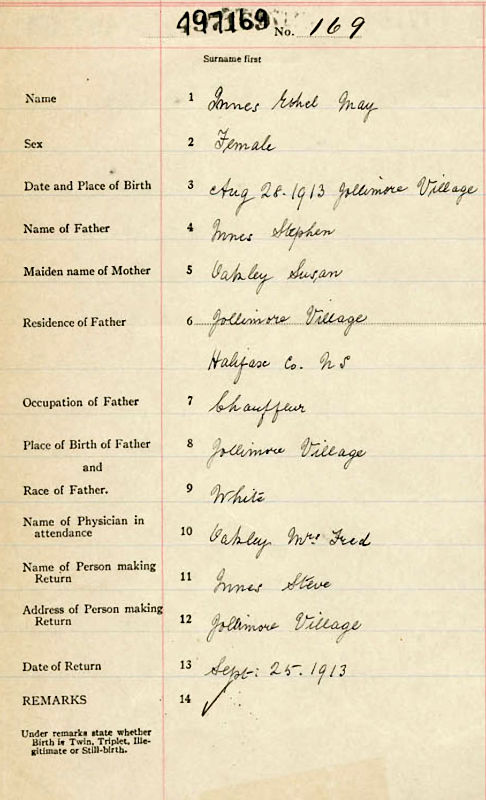 497169 No. 169
Surname first
Name 1 Innes Ethel May
Sex 2 Female
Date and Place of Birth 3 Aug 28. 1913 Jollimore Village
Name of Father 4 Innes Stephen
Maiden name of Mother 5 Oakley Susan
Residence of Father 6 Jollimore Village
Halifax Co. N S
Occupation of Father 7 Chauffeur
Place of Birth of Father 8 Jollimore Village
and
Race of Father. 9 White
Name of Physician in
attendance 10 Oakley Mrs Fred
Name of Person making
Return 11 Innes Steve
Address of Person making
Return 12 Jollimore Village
Date of Return 13 Sept: 25. 1913
REMARKS 14 ✓
Under remarks state whether
Birth is Twin, Triplet, Ille-
gitimate or Still-birth.